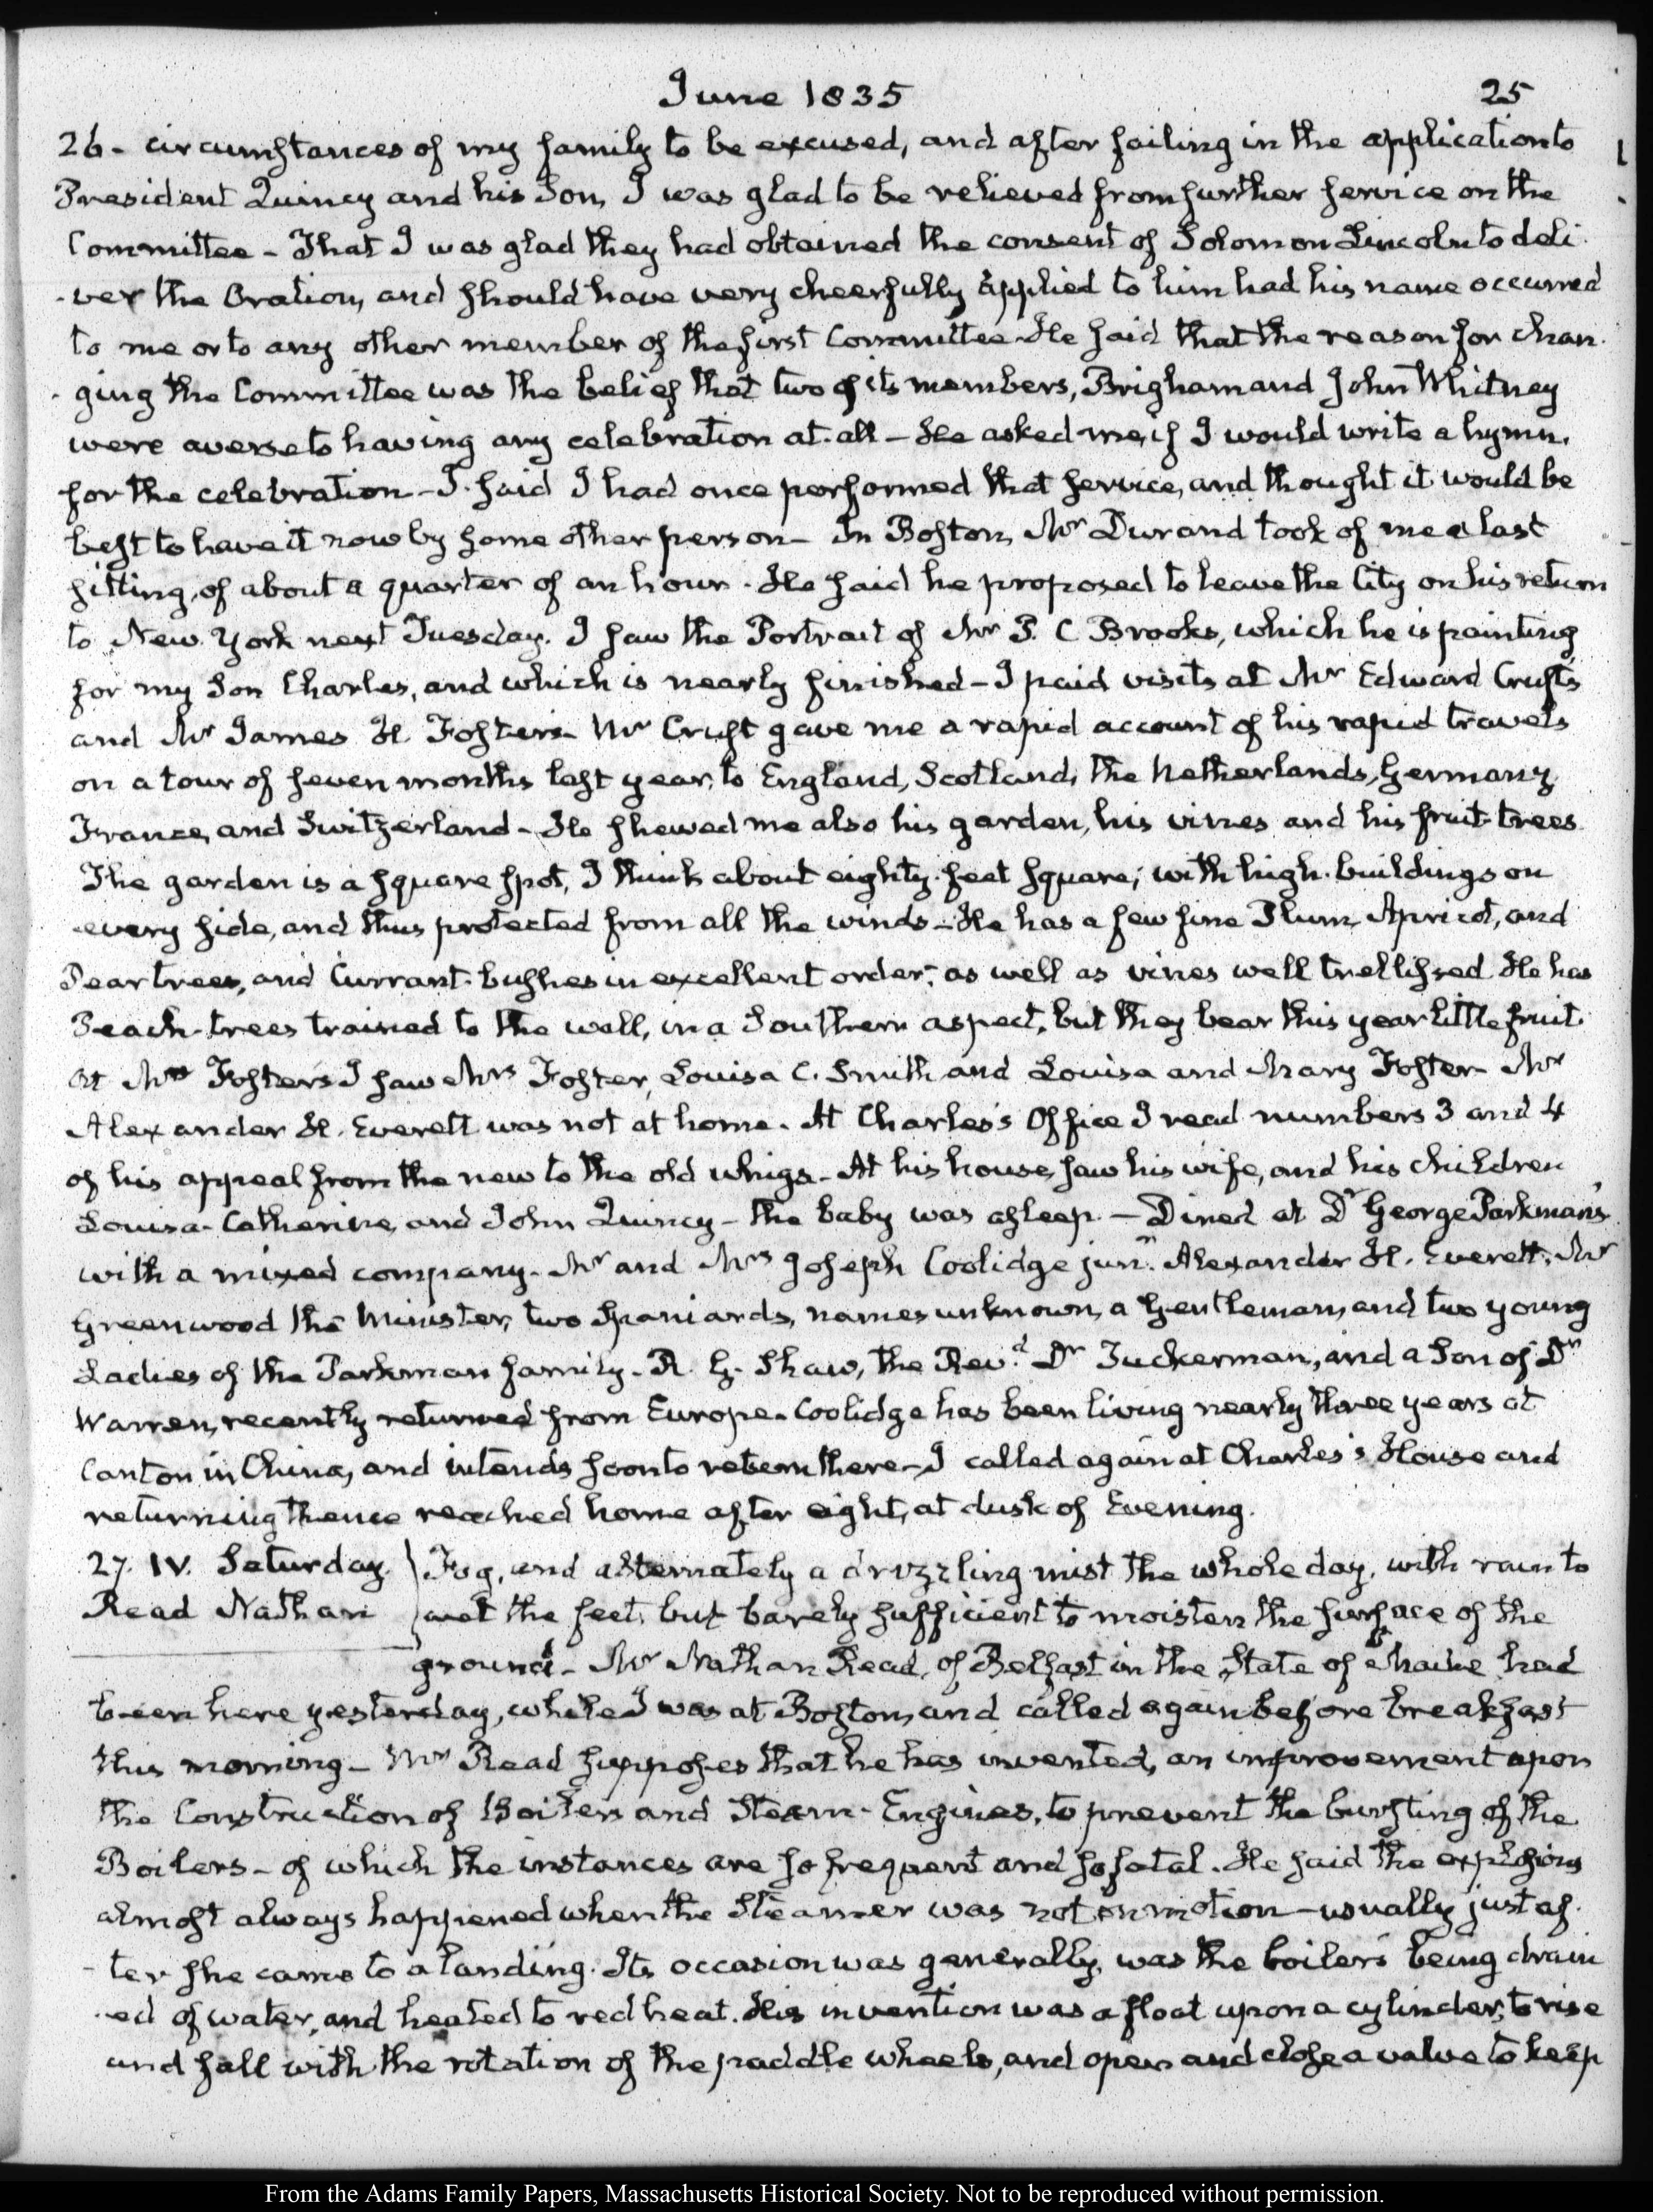 June 1835 25
26 - circumstances of my family to be excused, and after failing in the application to
President Quincy and his Son, I was glad to be relieved from further service on the
Committee - That I was glad they had obtained the consent of Solomon Lincoln to deli-
-ver the Oration, and should have very cheerfully applied to him had his name occurred
to me or to any other member of the first Committee. He said that the reason for chan-
ging the Committee was the belief that two of its members, Brigham and John Whitney
were averse to having any celebration at all - He asked me, if I would write a hymn,
for the celebration - I said I had once performed that service, and thought it would be
best to have it now by some other person - In Boston, Mr Durand took of me a last
sitting, of about a quarter of an hour. He said he proposed to leave the City on his return
to New York next Tuesday. I saw the Portrait of Mr P. C Brooks, which he is painting
for my Son Charles, and which is nearly finished - I paid visits at Mr Edward Cruft's
and Mr James H. Foster's. Mr Cruft gave me a rapid account of his rapid travels
on a tour of seven months last year, to England, Scotland, the Netherlands, Germany,
France, and Switzerland - He shewed me also his garden, his vines and his fruit-trees.
The garden is a square spot, I think about eighty feet square; with high buildings on
every side, and thus protected from all the winds - He has a few fine Plum, Apricot, and
Pear trees, and Currant-bushes in excellent order; as well as vines well trellissed. He has
Peach-trees trained to the wall, in a Southern aspect, but they bear this year little fruit.
At Mrs Fosters I saw Mrs Foster, Louisa C. Smith and Louisa and Mary Foster - Mr
Alexander H. Everett was not at home. At Charles's Office I read numbers 3 and 4
of his appeal from the new to the old whigs. At his house, saw his wife, and his children
Louisa-Catherine, and John Quincy - the baby was asleep. - Dined at Dr George Parkman's
with a mixed company. Mr and Mrs Joseph Coolidge junr. Alexander H. Everett, Mr
Greenwood the Minister, two Spaniards, names unknown, a Gentleman, and two young
Ladies of the Parkman family. R. G. Shaw, the Revd. Dr Tuckerman, and a Son of Dr
Warren, recently returned from Europe. Coolidge has been living nearly three years at
Canton in China, and intends soon to return there - I called again at Charles's House and
returning thence reached home after eight, at dusk of Evening.
27. IV. Saturday. Fog, and alternately a drizzling mist the whole day, with rain to
Read Nathan wet the feet, but barely sufficient to moisten the surface of the
ground - Mr Nathan Read, of Belfast in the State of Maine had
been here yesterday, while I was at Boston, and called again before breakfast
this morning - Mr Read supposes that he has invented, an improvement upon
the Construction of Boilers and Steam-Engines, to prevent the bursting of the
Boilers - of which the instances are so frequent and so fatal. He said the explosions
almost always happened when the Steamer was not in motion - usually just af-
-ter she came to a landing. Its occasion was generally, was the boilers being drain
-ed of water, and heated to red heat. His invention was a float upon a cylinder, to rise
and fall with the rotation of the paddle wheels, and open and close a valve to keep
From the Adams Family Papers, Massachusetts Historical Society. Not to be reproduced without permission.